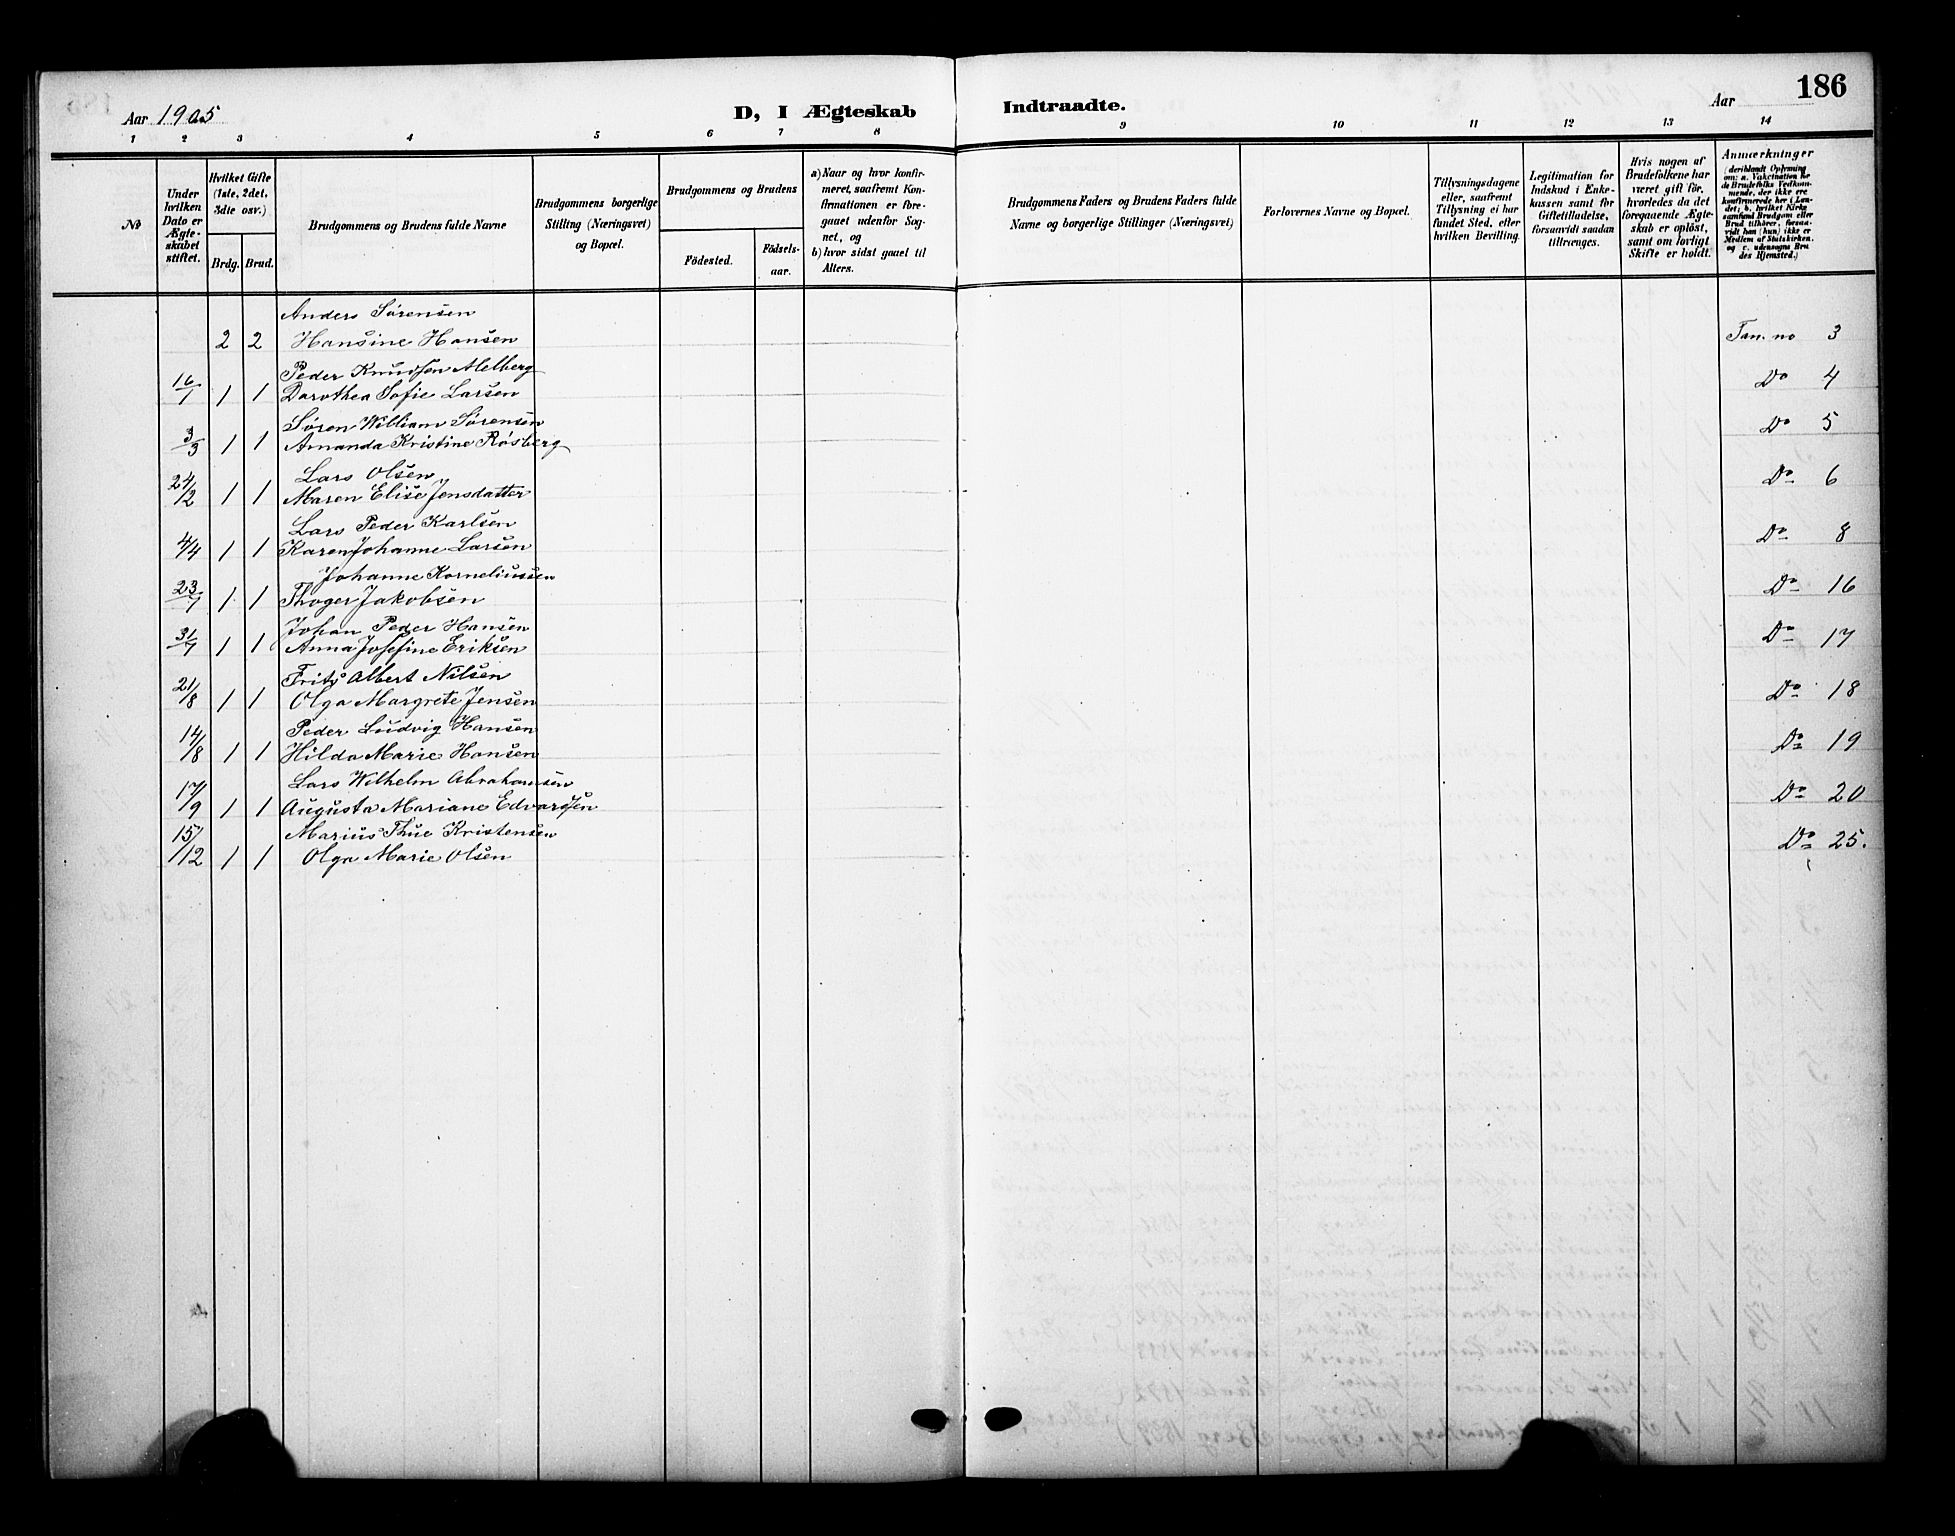 186
Aar 1905 D, I Ægteskab Indtraadte. Aar
1 2 3 4 5 6 7 8 9 10 11 12 13 14
No
Under hvilken Dato er Ægteskabet stiftet.
Hvilket Gifte (1ste, 2det, 3die osv.)
Brdg. Brud.
Brudgommens og Brudens fulde Navne
Brudgommens borgerlige Stilling (Næringsvei) og Bopæl.
Brudgommens og Brudens
Födested. Födsels-aar.
a) Naar og hvor konfirmeret, saafremt Konfirmationen er foregaaet udenfor Sognet, og
b) hvor sidst gaaet til Alters.
Brudgommens Faders og Brudens Faders fulde Navne og borgerlige Stillinger (Næringsvei)
Forlovernes Navne og Bopæl.
Tillysningsdagene eller, saafremt Tillysning ei har fundet Sted, efter hvilken Bevilling.
Legitimation for Indskud i Enkekassen samt for Giftetilladelse, forsaavidt saadan tiltrænges.
Hvis nogen af Brudefolkene har været gift før, hvorledes da det foregaaende Ægteskab er opløst, samt om lovligt Skifte er holdt.
Anmærkninger
(deriblandt Oplysning om: a. Vakcination for de Brudefolks Vedkommende, der ikke ere konfirmerede her i Landet; b. hvilket Kirkesamfund Brudgom eller Brud tilhører, forsaavidt han (hun) ikke er Medlem af Statskirken, og c. udensogns Brudes Hjemsted.)
Anders Sørensen
2 2 Hansine Hansen Tan. no 3
Peder Knudsen Melberg
16/1 1 1 Dorothea Sofie Larsen Do 4
Søren William Sørensen
3/3 1 1 Amanda Kristine Røsberg Do 5
Lars Olsen
24/2 1 1 Maren Elise Jensdatter Do 6
Lars Peder Karlsen
4/4 1 1 Karen Johanne Larsen Do 8
Johanne Korneliussen
23/7 1 1 Thoger Jakobsen Do 16
Johan Peder Hansen
31/7 1 1 Anna Josefine Eriksen Do 17
Frits Albert Nilsen
21/8 1 1 Olga Margrete Jensen Do 18
Peder Ludvig Hansen
14/8 1 1 Hilda Marie Hansen Do 19
Lars Wilhelm Abrahamsen
17/9 1 1 Augusta Mariane Edvardsen Do 20
Marius Thue Kristensen
15/12 1 1 Olga Marie Olsen Do 25.